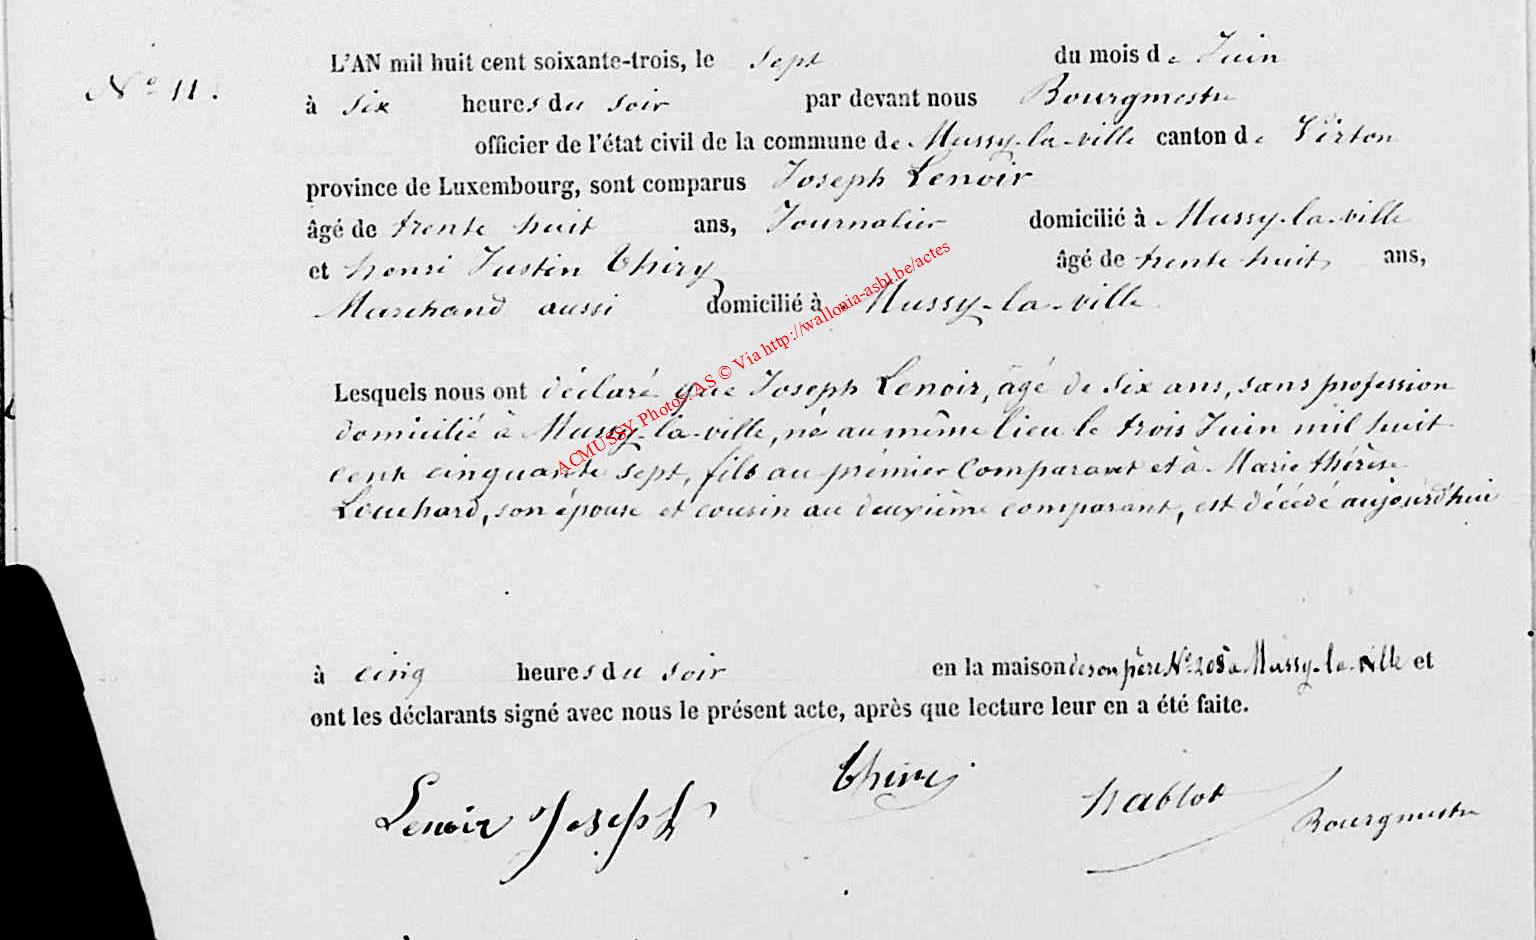 L'AN mil huit cent soixante-trois, le sept du mois de Juin
N° 11.
à six heures du soir par devant nous Bourgmestre
officier de l'état civil de la commune de Mussy-la-ville canton de Virton
province de Luxembourg, sont comparus Joseph Lenoir
âgé de trente huit ans, Journalier domicilié à Mussy-la-ville
et henri Justin Thiry âgé de trente huit ans,
Marchand aussi domicilié à Mussy-la-ville
ACMUSSY Photos: AS © Via http://wallonia-asbl.be/actes
Lesquels nous ont déclaré que Joseph Lenoir, âgé de six ans, sans profession
domicilié à Mussy-la-ville, né au même lieu le trois Juin mil huit
cent cinquante sept, fils au prémier Comparant et à Marie thérèse
Louchard, son épouse et cousin au deuxième comparant, est décédé aujourd'hui
à cinq heures du soir en la maison de son père N° 205 à Mussy-la-ville et
ont les déclarants signé avec nous le présent acte, après que lecture leur en a été faite.
Lenoir Joseph Thiry hablot Bourgmestre